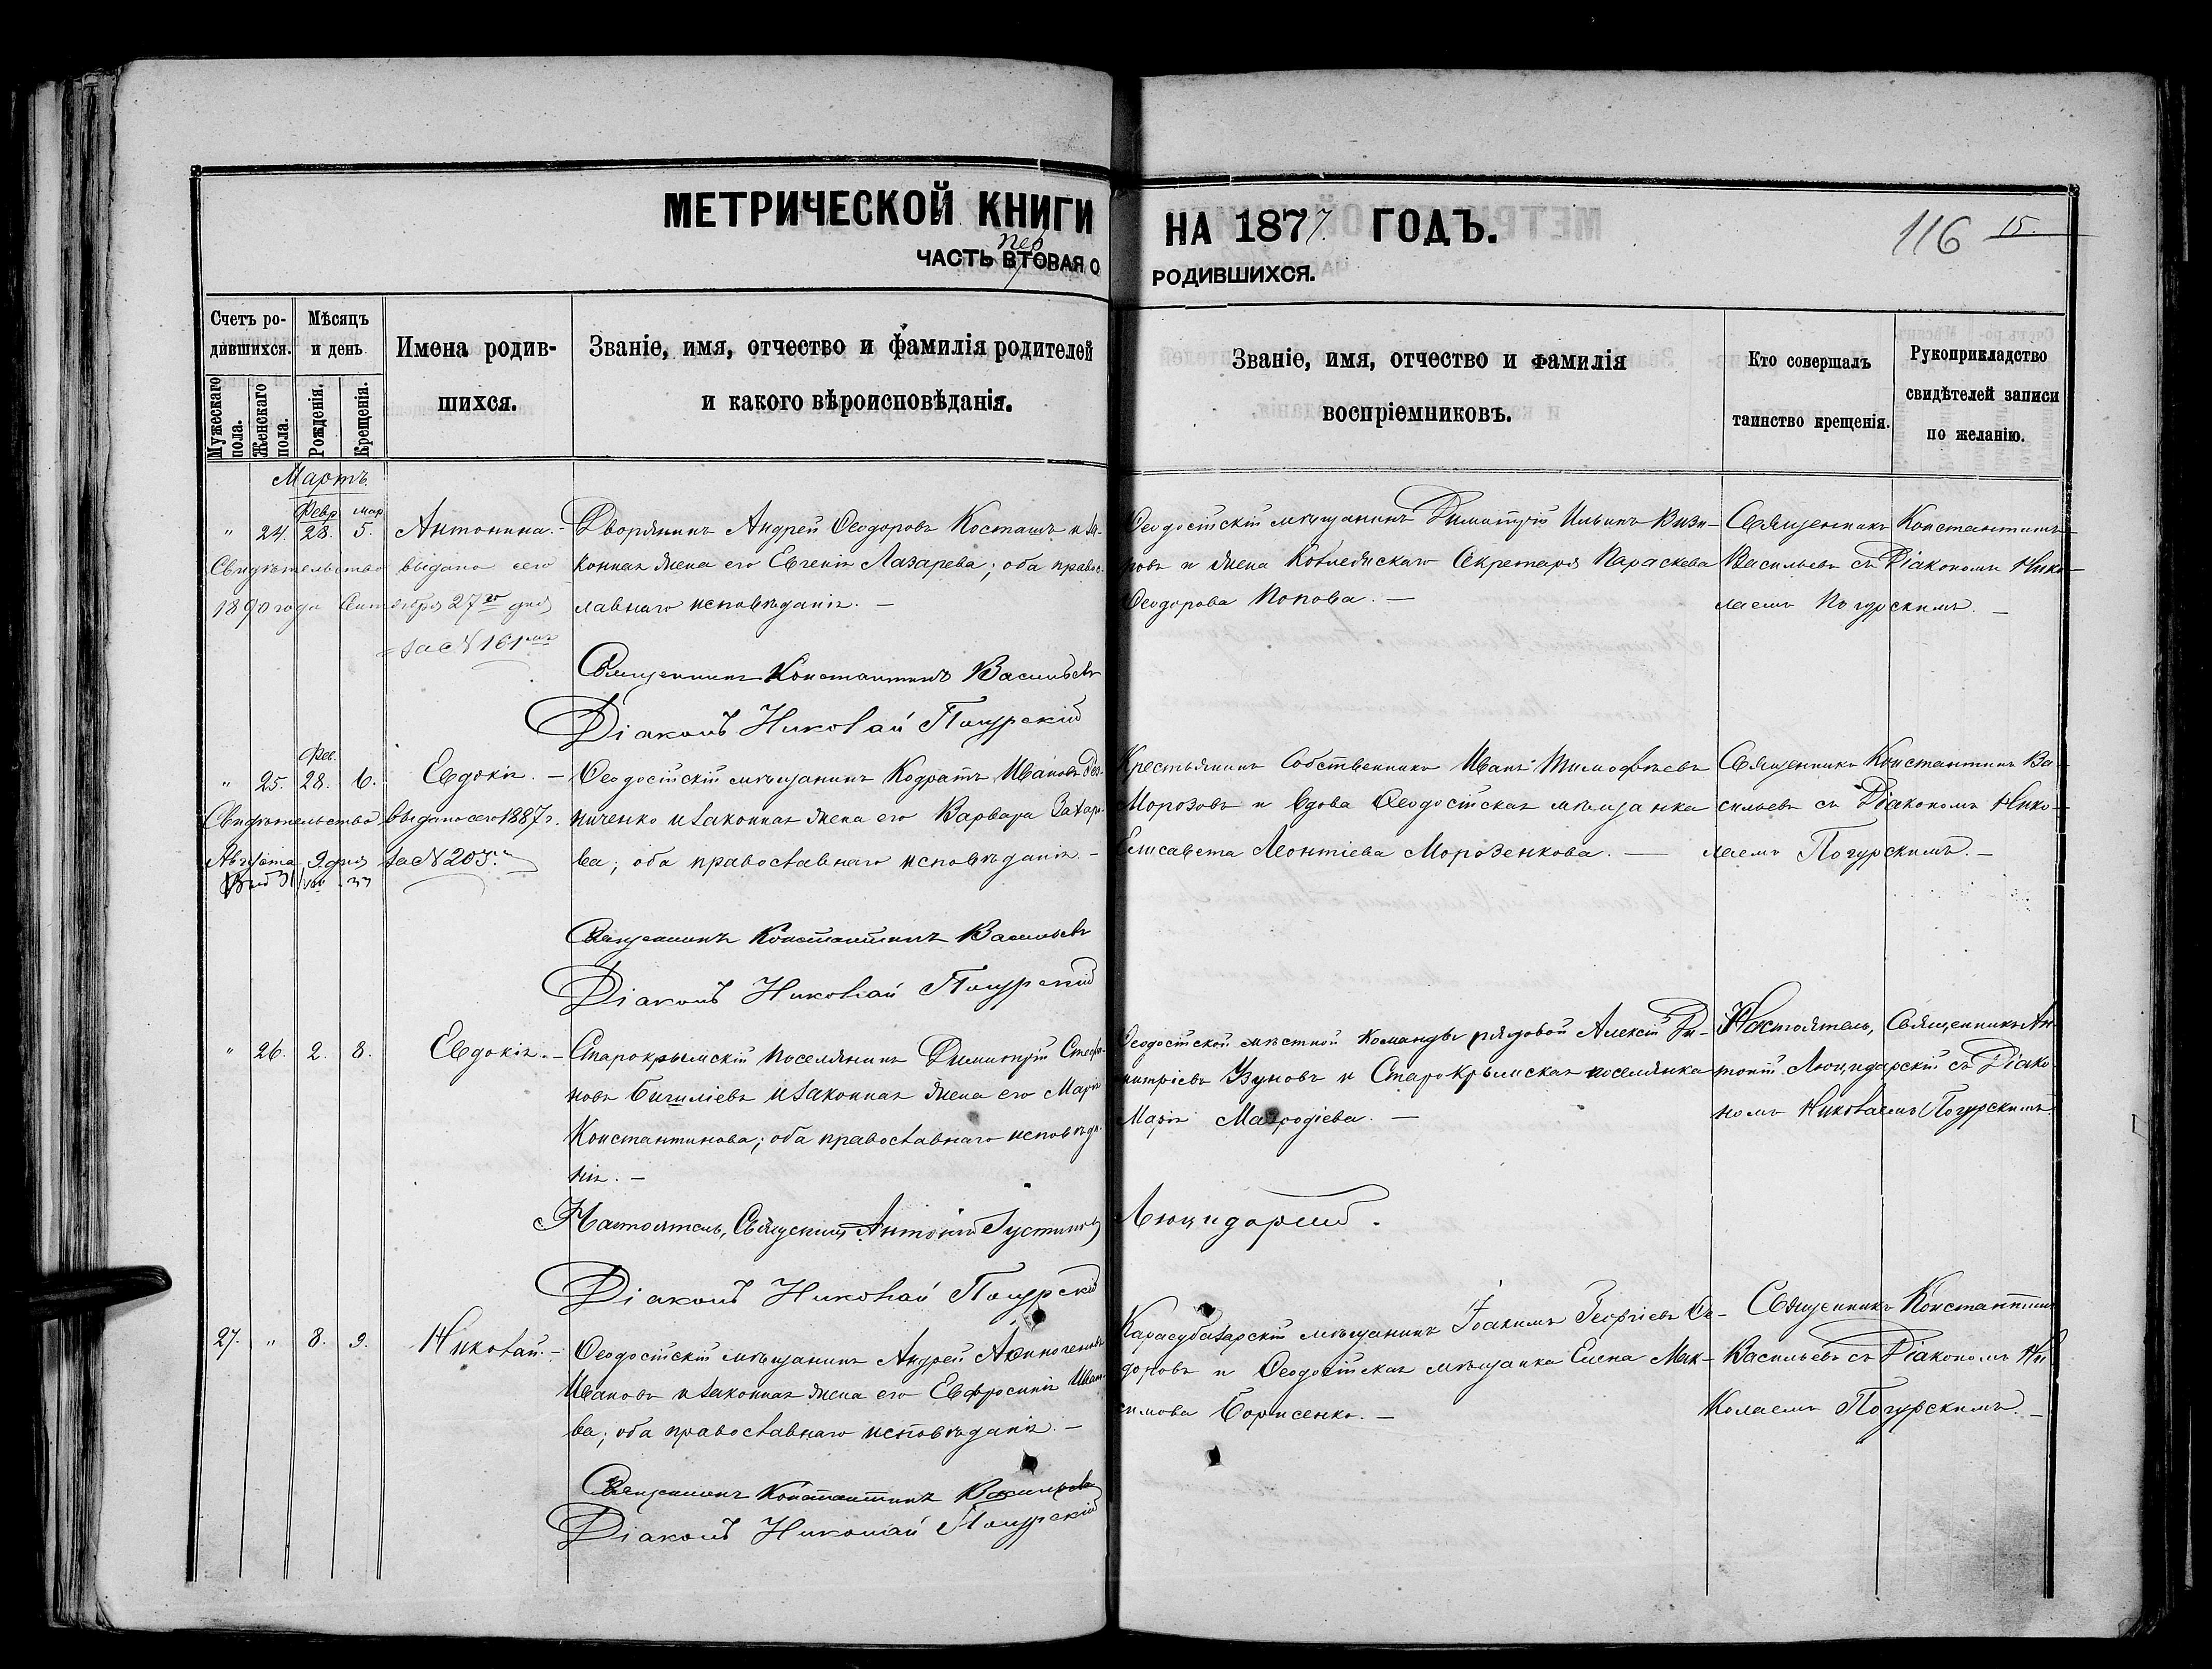 МЕТРИЧЕСКОЙ КНИГИ НА 1877 ГОДЪ.
116 15.
пер
ЧАСТЬ ВТОРАЯ О РОДИВШИХСЯ.
Счетъ родившихся.
Мужескаго пола.
Женскаго пола.
Мѣсяцъ и день
Рожденія.
Крещенія.
Имена родившихся.
Званіе, имя, отчество и фамилія родителей
и какого вѣроисповѣданія.
Званіе, имя, отчество и фамилія
воспріемниковъ.
Кто совершалъ
таинство крещенія.
Рукоприкладство
свидѣтелей записи
по желанію.
Мартъ
Февр. мар.
" 24. 28. 5. Антонина. –
Свидѣтельство выдано сего
1890 года Сентября 27го дня
за N 161мъ
Дворянинъ Андрей Ѳеодоровъ Косташъ и за-
конная жена его Евгенія Лазарева; оба правос-
лавнаго исповѣданія. –
Ѳеодосійскій мѣщанинъ Димитрій Ильинъ
и жена Секретаря Параскева
Ѳеодорова Попова. –
Священникъ Константинъ
Васильевъ съ Діакономъ Нико-
лаемъ Погурскимъ. –
Священникъ Константинъ Васильевъ
Діаконъ Николай Погурскій
Фев.
" 25. 28. 6. Евдокія. –
Свидѣтельство выдано сего 1887 г.
Августа 9 дня за N 205.
Ѳеодосійскій мѣщанинъ Кодратъ Ивановъ
ниченко и законная жена его Варвара Захаро-
ва; оба православнаго исповѣданія. –
Крестьянинъ Собственникъ Иванъ Тимофѣевъ
Морозовъ и вдова Ѳеодосійская мѣщанка
Елисавета Леонтіева Морозенкова. –
Священникъ Константинъ Ва-
сильевъ съ Діакономъ Нико-
лаемъ Погурскимъ. –
Священникъ Константинъ Васильевъ
Діаконъ Николай Погурскій
" 26. 2. 8. Евдокія. –
Старокрымскій поселянинъ Димитрій Стефа-
новъ и законная жена его Марія
Константинова; оба православнаго исповѣда-
нія. –
Ѳеодосійской мѣстной команды рядовой Алексій Ди-
митріевъ Зуновъ и Старокрымская поселянка
Марія Мавродіева. –
Настоятель, Священникъ Ан-
тоній Люцидарскій съ Діако-
номъ Николаемъ Погурскимъ
Настоятель, Священникъ Антоній Іустиновъ Люцидарскій.
Діаконъ Николай Погурскій
27. " 8. 9. Николай. –
Ѳеодосійскій мѣщанинъ Андрей
Ивановъ и законная жена его Евфросинія Ивано-
ва; оба православнаго исповѣданія. –
Карасубазарскій мѣщанинъ Іоакимъ Георгіевъ
и Ѳеодосійская мѣщанка Елена Мак-
симова Борисенко. –
Священникъ Константинъ
Васильевъ съ Діакономъ Ни-
колаемъ Погурскимъ. –
Священникъ Константинъ Васильевъ
Діаконъ Николай Погурскій